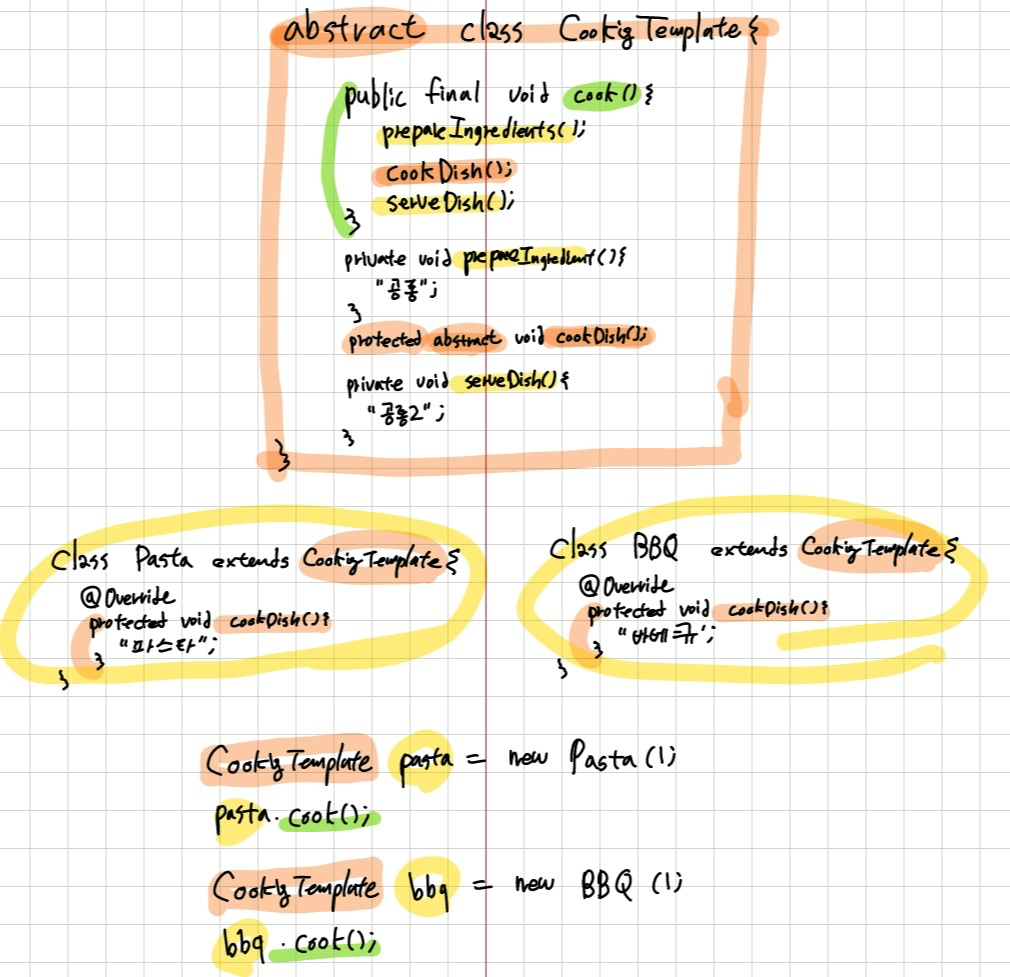 abstract class CookigTemplate{
public final void cook(){
prepareIngredients();
cookDish();
serveDish();
}
private void prepareIngredient(){
"공통";
}
protected abstract void cookDish();
private void serveDish(){
"공통2";
}
}
Class Pasta extends CookigTemplate{
@Override
protected void cookDish(){
"파스타";
}
}
Class BBQ extends CookigTemplate{
@Override
protected void cookDish(){
"바베큐";
}
}
CookigTemplate pasta = new Pasta();
pasta.cook();
CookigTemplate bbq = new BBQ();
bbq.cook();